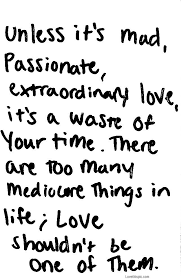 unless it's mad,
Passionate,
extraordinary love,
it's a waste of
Your time. There
are too many
mediocre Things in
life; Love
shouldn't be
one of Them.